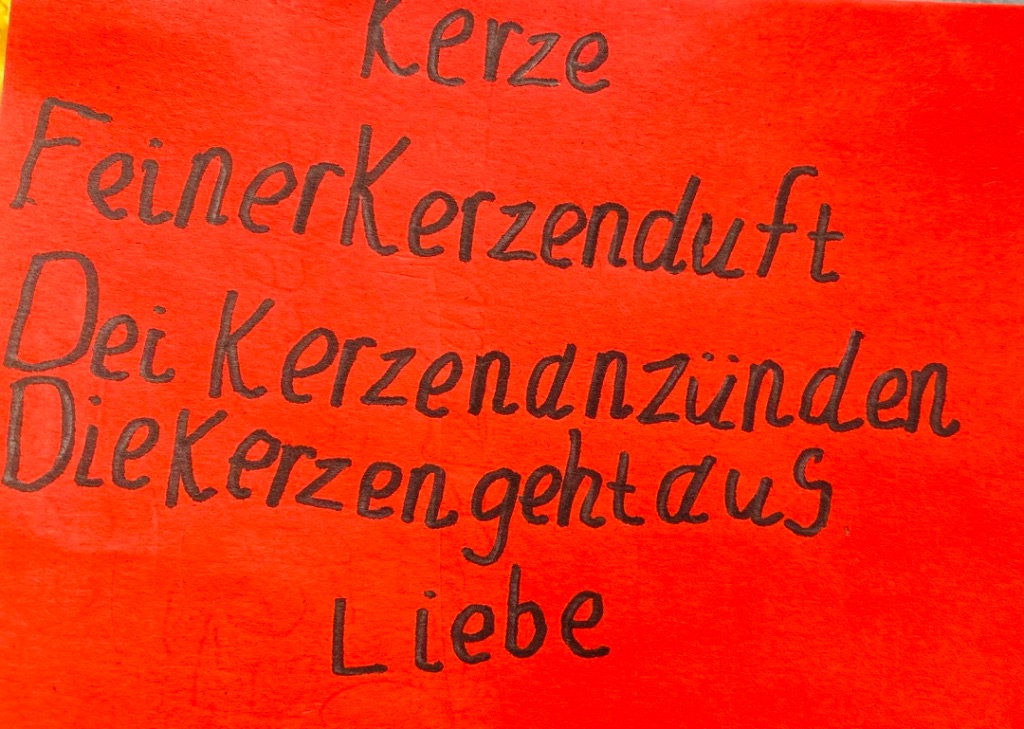 Kerze
Feiner Kerzenduft
Dei Kerzen anzünden
Die Kerzen geht aus
Liebe